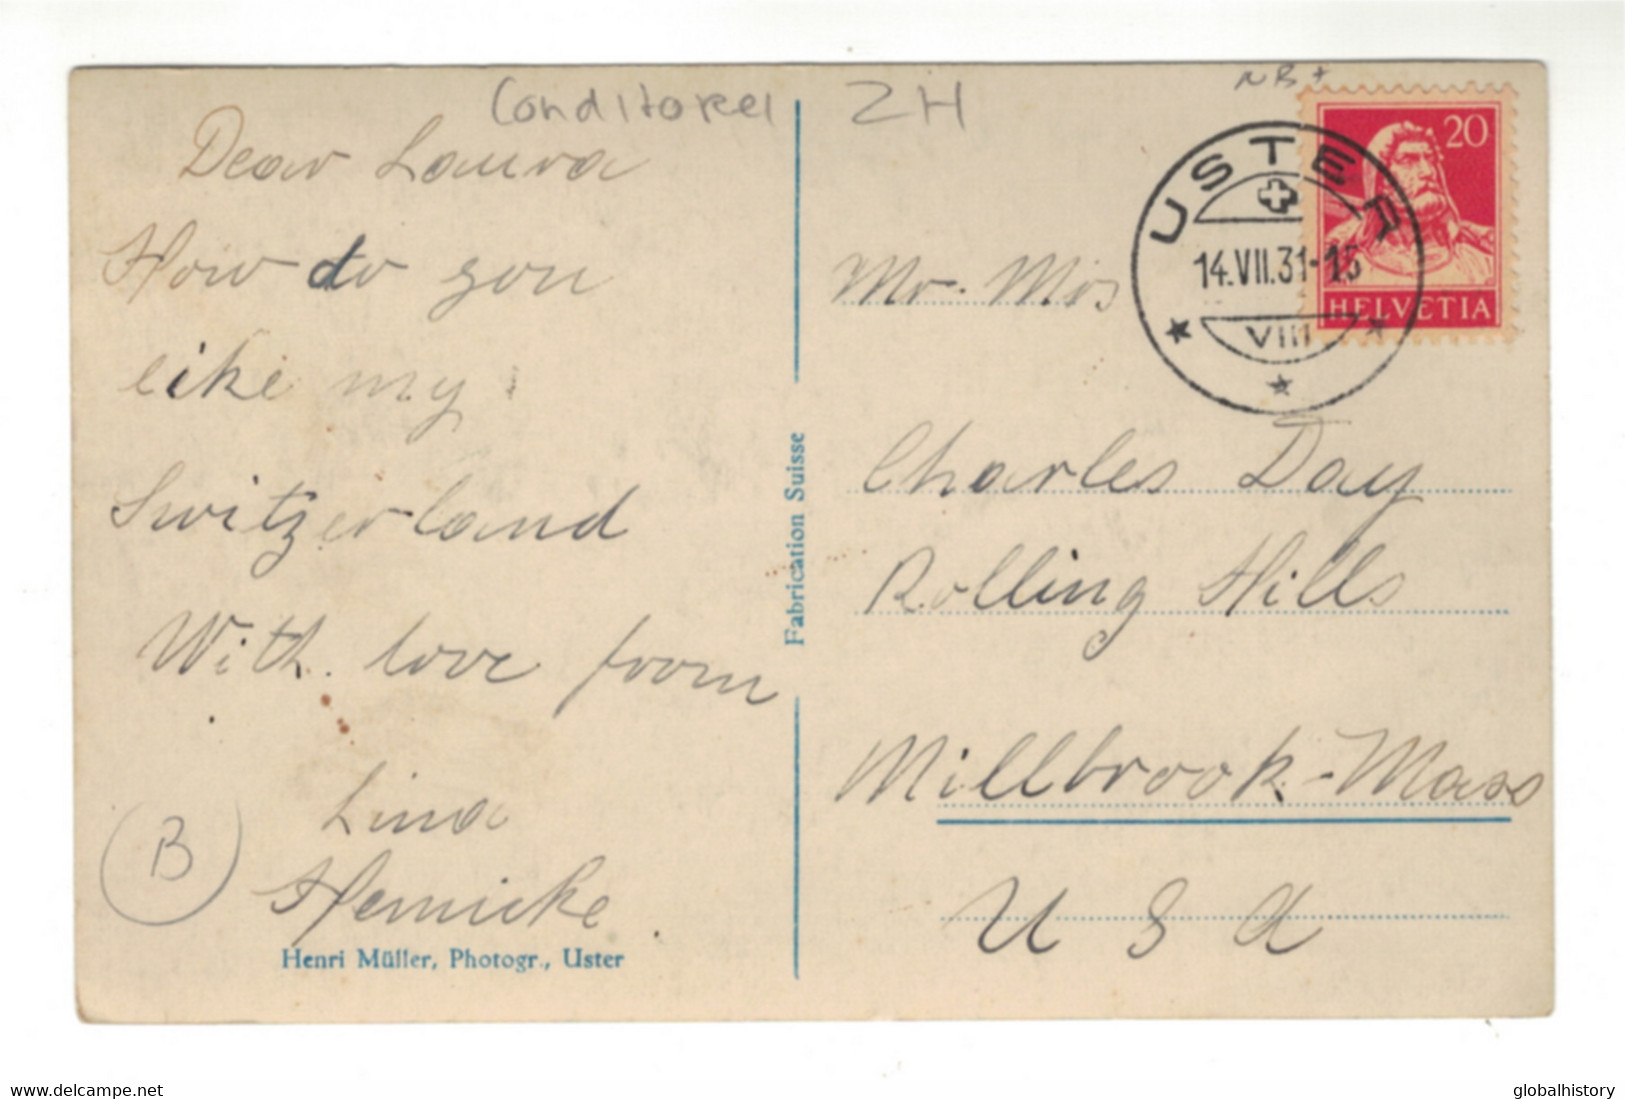 Conditorei ZH
NB+
Dear Laura
How do you
like my
Switzerland
With love from
Lina
Hernicke.
B
Henri Müller, Photogr., Uster
Fabrication Suisse
USTER
14.VII.31-15
VIII
20
HELVETIA
Mr. Mrs
Charles Day
Rolling Hills
Millbrook-Mass
U S A
www.delcampe.net
globalhistory